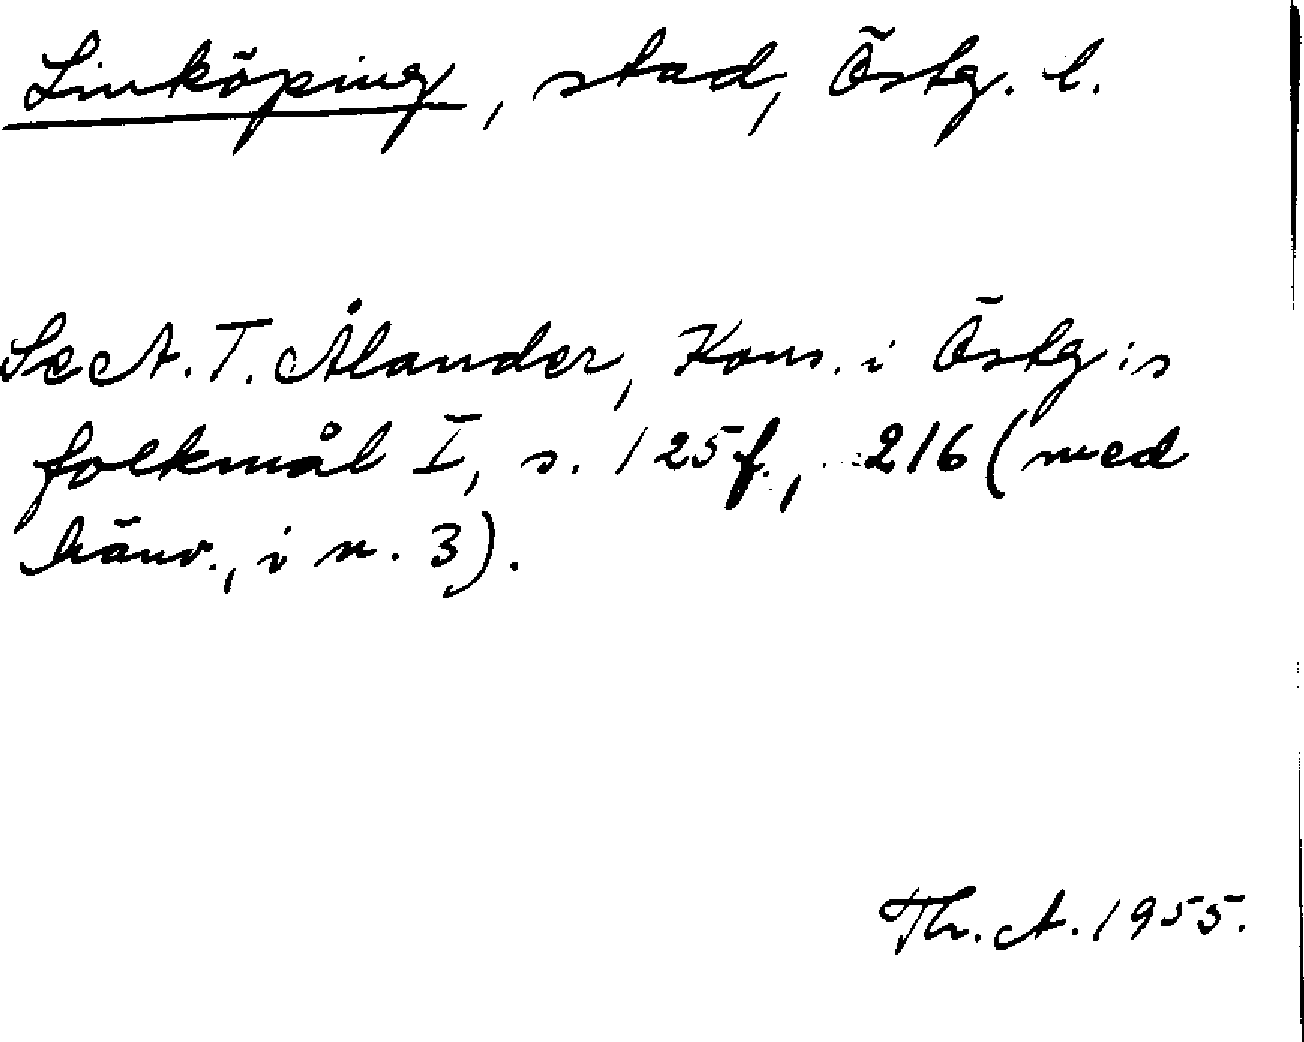 Linköping, stad, Östg. l.
Se A. T. Ålander, Kons. i Östg:s
folkmål I, s. 125 f., 216 (med
hänv., i n. 3).
Th. A. 1955.